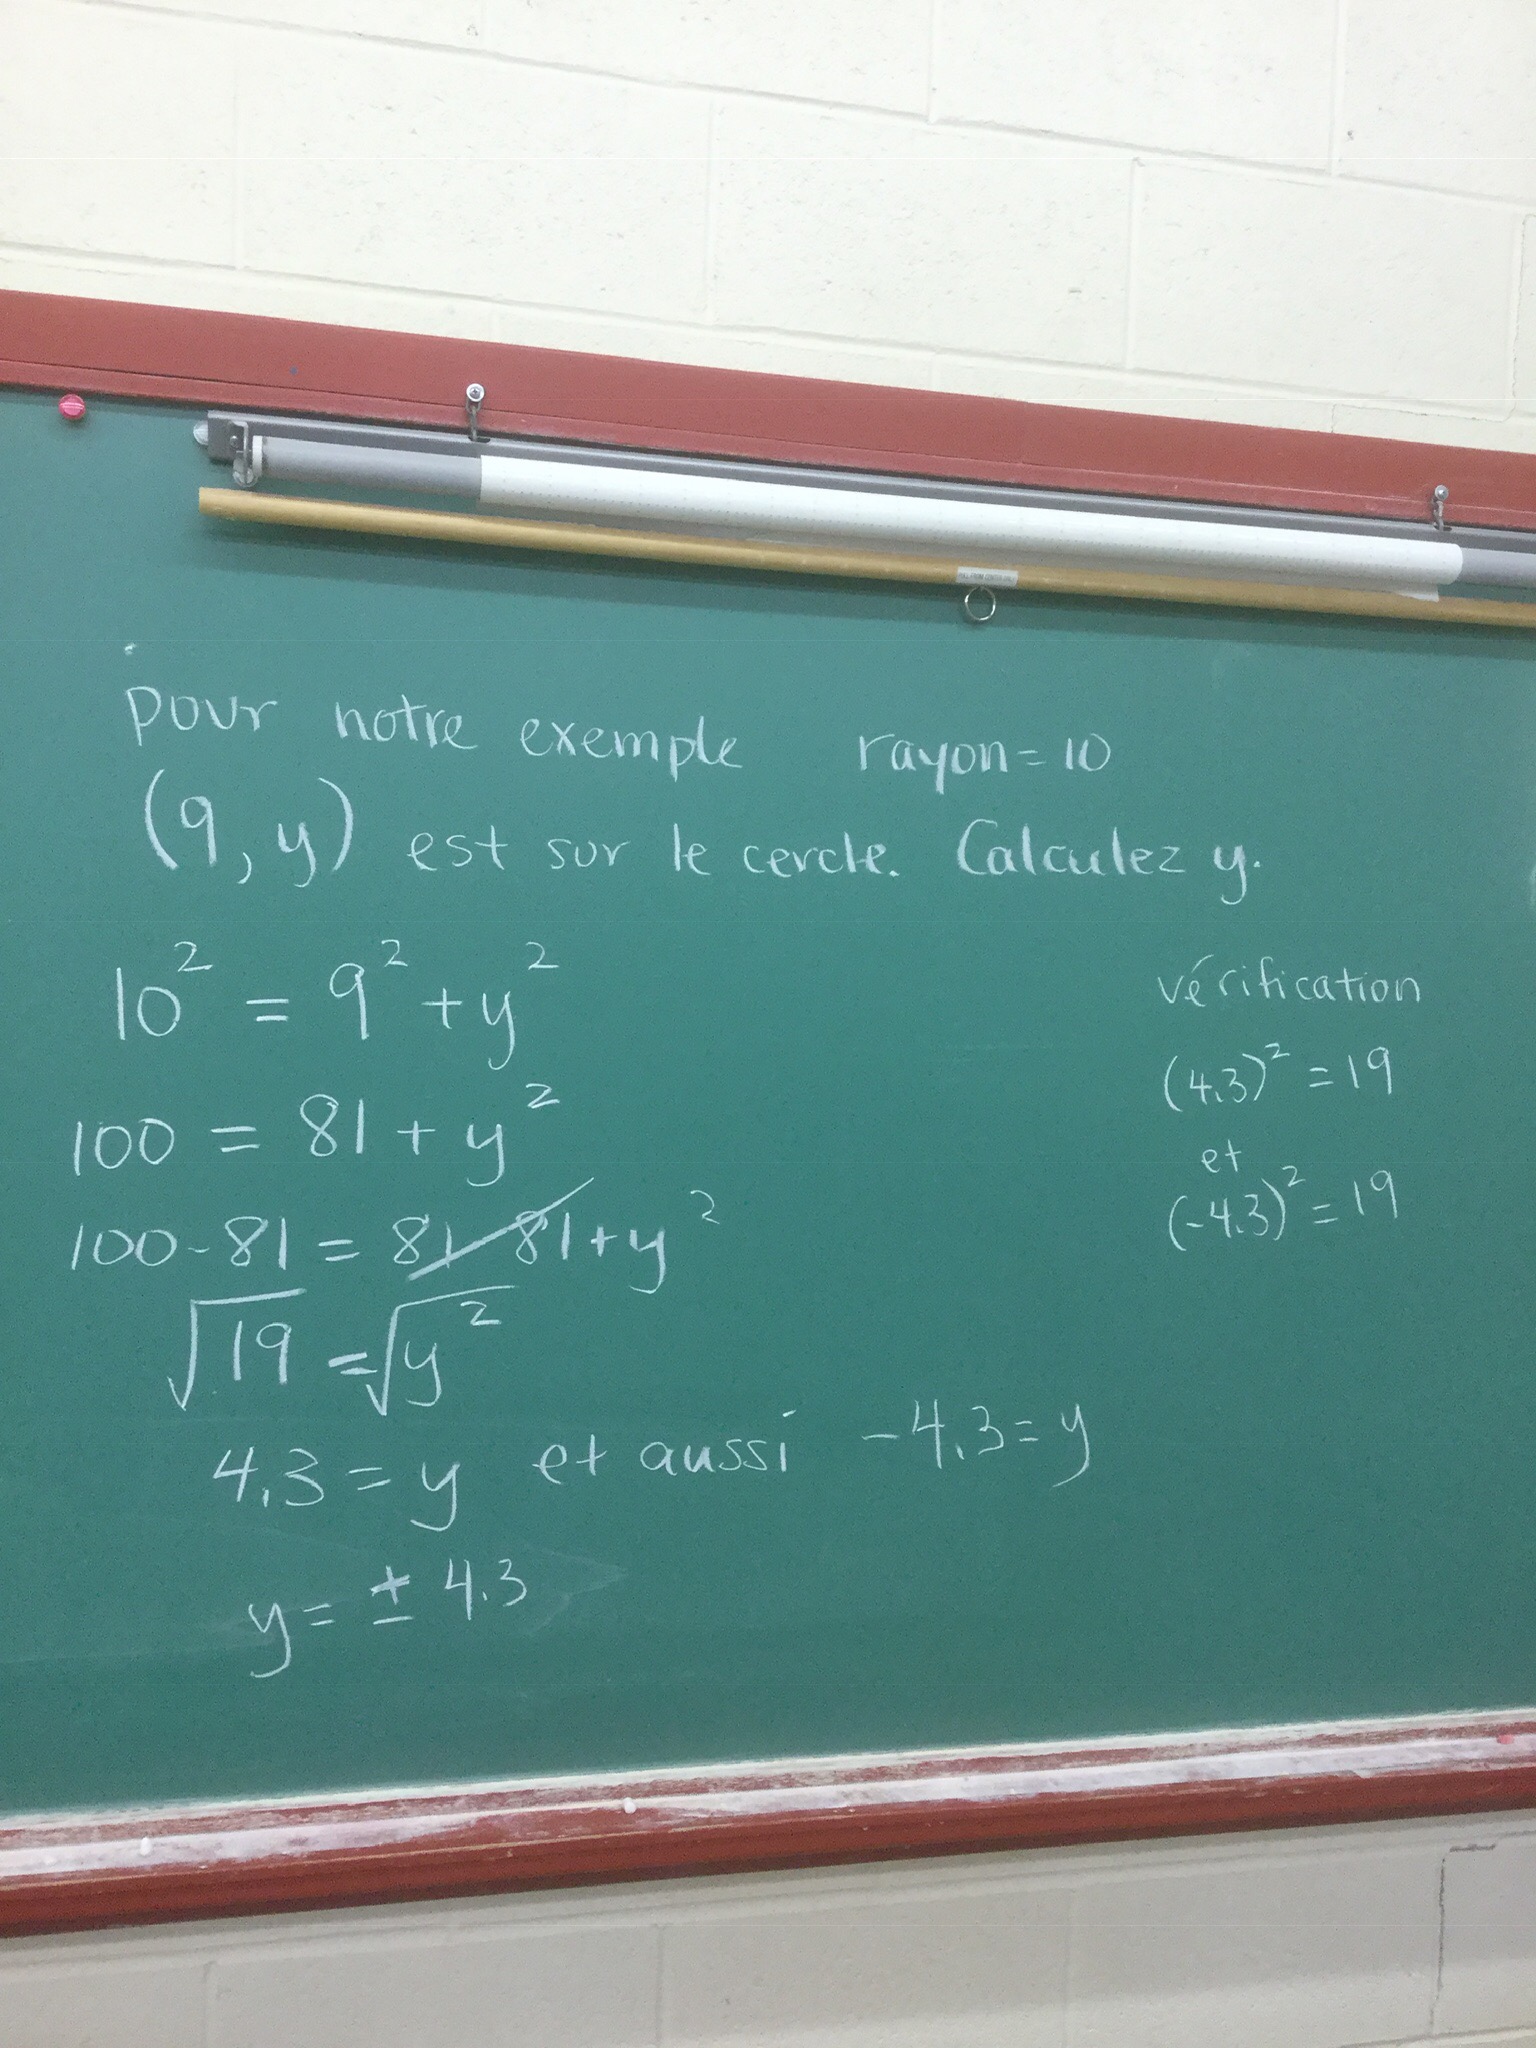 pour notre exemple rayon = 10
(9, y) est sur le cercle. Calculez y.
10² = 9² + y²
100 = 81 + y²
100 - 81 = 81 - 81 + y²
√19 = √y²
4.3 = y et aussi -4.3 = y
y = ± 4.3
vérification
(4.3)² = 19
et
(-4.3)² = 19